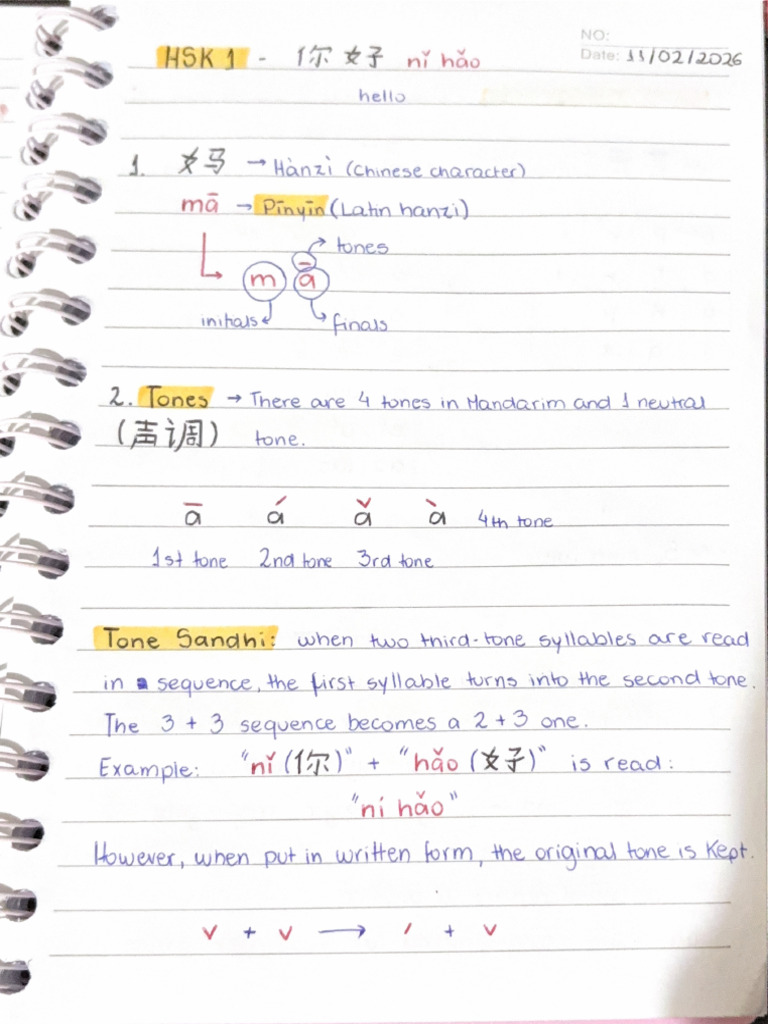 NO:
HSK 1 - 你好 nǐ hǎo Date: 11/02/2026
hello
1. 妈 → Hànzì (Chinese character)
mā → Pīnyīn (Latin hanzi)
tones
m ā
initials finals
2. Tones → There are 4 tones in Mandarim and 1 neutral
(声调) tone.
ā á ǎ à 4th tone
1st tone 2nd tone 3rd tone
Tone Sandhi: when two third-tone syllables are read
in sequence, the first syllable turns into the second tone.
The 3 + 3 sequence becomes a 2 + 3 one.
Example: "nǐ (你)" + "hǎo (好)" is read:
"ní hǎo"
However, when put in written form, the original tone is kept.
ˇ + ˇ → ˊ + ˇ